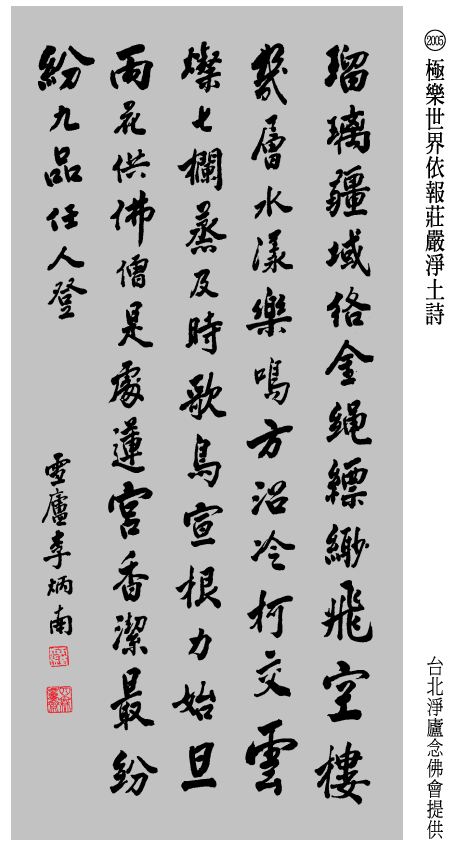 2005 極樂世界依報莊嚴淨土詩
台北淨廬念佛會提供
瑠璃疆域絡金繩縹緲飛空樓
幾層水漾樂鳴方沼冷柯交雲
燦七欄蒸及時歌鳥宣根力始旦
雨花供佛僧是處蓮宮香潔最紛
紛九品任人登
雪廬李炳南